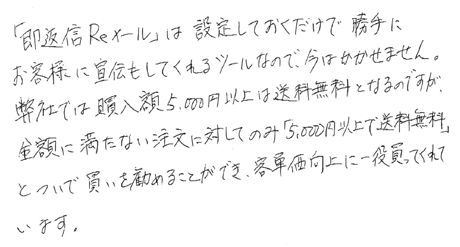 「即返信Reメール」は 設定しておくだけで 勝手に
お客様に宣伝もしてくれるツールなので、今はかかせません。
弊社では購入額5,000円以上は送料無料となるのですが、
金額に満たない注文に対してのみ「5,000円以上で送料無料」
とついで買いを勧めることができ、客単価向上に一役買ってくれて
います。